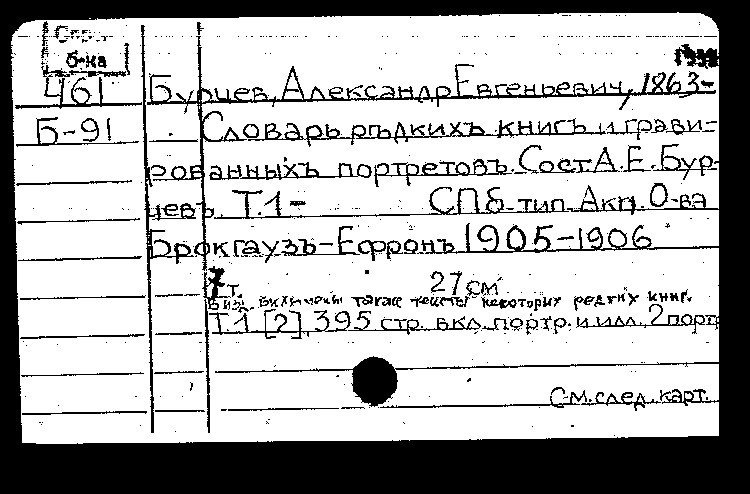 Спр.
б-ка
461
Б-91
Бурцев, Александр Евгеньевич, 1863-
Словарь рѣдкихъ книгъ и грави-
рованныхъ портретовъ. Сост. А. Е. Бур-
цевъ. Т. 1- СПб. тип. Акц. О-ва
Брокгаузъ-Ефронъ 1905-1906
7 т. 27 см
включены также тексты некоторых редких книг.
Т. 1 [2], 395 стр. вкл. портр. и илл., 2 портр
См. след. карт.